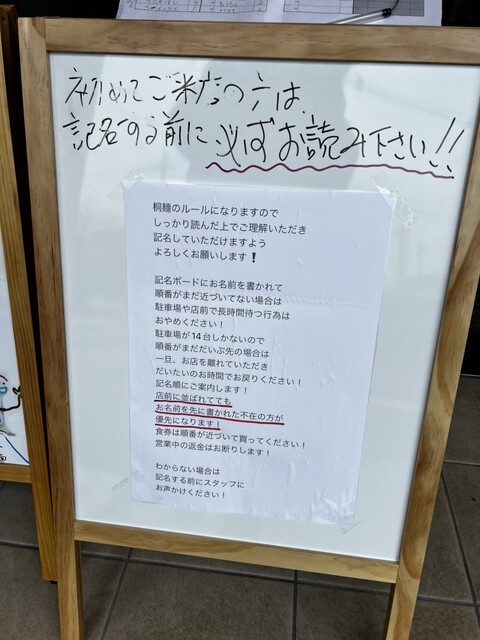 初めてご来店の方は
記名する前に必ずお読み下さい!!
桐麺のルールになりますので
しっかり読んだ上でご理解いただき
記名していただけますよう
よろしくお願いします！
記名ボードにお名前を書かれて
順番がまだ近づいてない場合は
駐車場や店前で長時間待つ行為は
おやめください！
駐車場が14台しかないので
順番がまだだいぶ先の場合は
一旦、お店を離れていただき
だいたいのお時間でお戻りください！
記名順にご案内します！
店前に並ばれてても
お名前を先に書かれた不在の方が
優先になります！
食券は順番が近づいて買ってください！
営業中の返金はお断りします！
わからない場合は
記名する前にスタッフに
お声かけください！